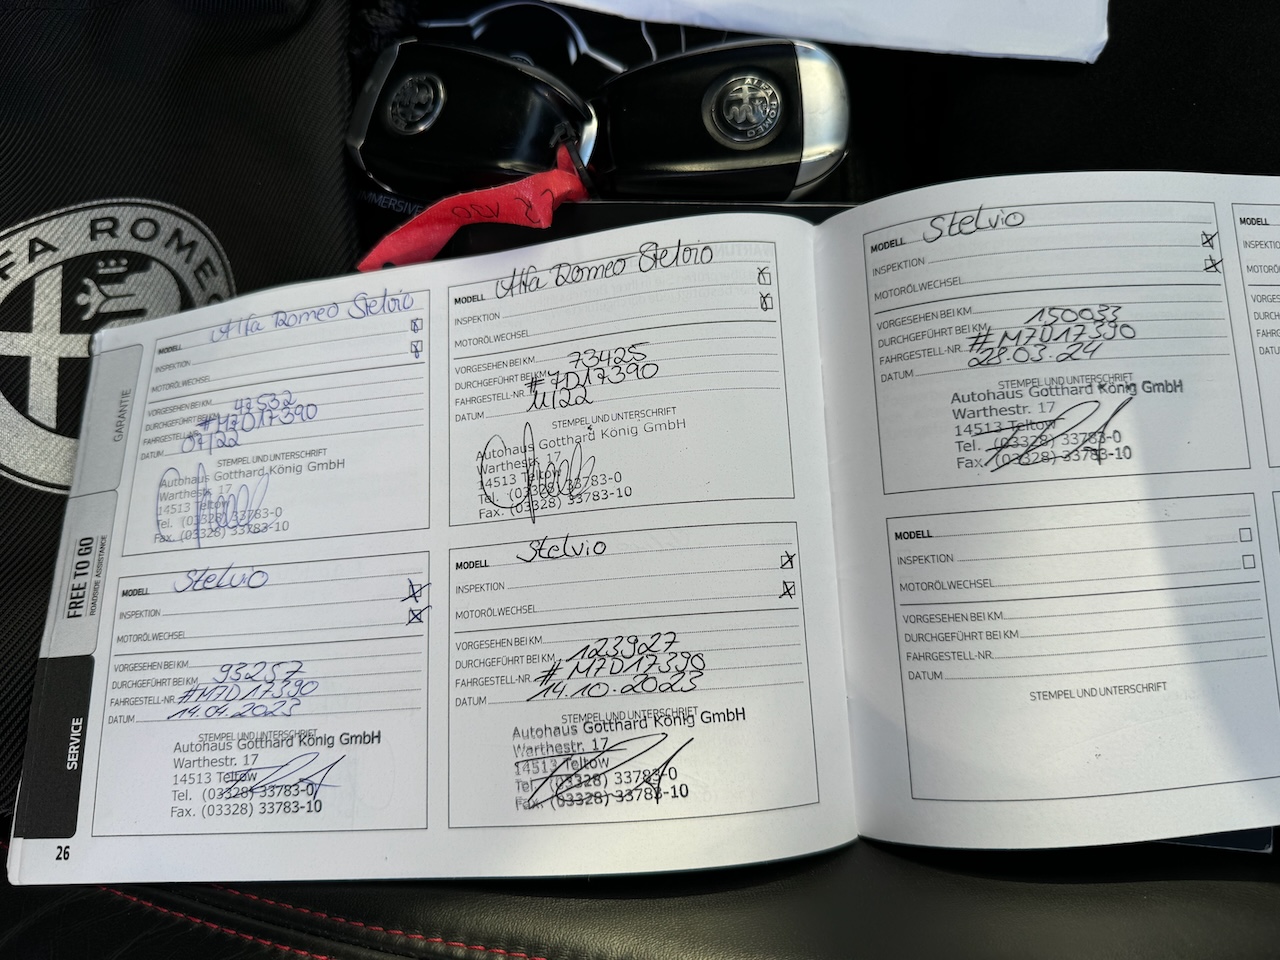 ALFA ROMEO
ALFA ROMEO
IMMERSIVE
GARANTIE
FREE TO GO
ROADSIDE ASSISTANCE
SERVICE
MODELL Alfa Romeo Stelvio
INSPEKTION
MOTORÖLWECHSEL
VORGESEHEN BEI KM
DURCHGEFÜHRT BEI KM 42532
FAHRGESTELL-NR. #M7D17390
DATUM 07/22
STEMPEL UND UNTERSCHRIFT
Autohaus Gotthard König GmbH
Warthestr. 17
14513 Teltow
Tel. (03328) 33783-0
Fax. (03328) 33783-10
MODELL Alfa Romeo Stelvio
INSPEKTION
MOTORÖLWECHSEL
VORGESEHEN BEI KM
DURCHGEFÜHRT BEI KM 73425
FAHRGESTELL-NR. #7D17390
DATUM 11/22
STEMPEL UND UNTERSCHRIFT
Autohaus Gotthard König GmbH
Warthestr. 17
14513 Teltow
Tel. (03328) 33783-0
Fax. (03328) 33783-10
MODELL Stelvio
INSPEKTION
MOTORÖLWECHSEL
VORGESEHEN BEI KM
DURCHGEFÜHRT BEI KM 93257
FAHRGESTELL-NR. #M7D17390
DATUM 14.04.2023
STEMPEL UND UNTERSCHRIFT
Autohaus Gotthard König GmbH
Warthestr. 17
14513 Teltow
Tel. (03328) 33783-0
Fax. (03328) 33783-10
MODELL Stelvio
INSPEKTION
MOTORÖLWECHSEL
VORGESEHEN BEI KM
DURCHGEFÜHRT BEI KM 123927
FAHRGESTELL-NR. #M7D17390
DATUM 14.10.2023
STEMPEL UND UNTERSCHRIFT
Autohaus Gotthard König GmbH
Warthestr. 17
14513 Teltow
Tel. (03328) 33783-0
Fax. (03328) 33783-10
26
MODELL Stelvio
INSPEKTION
MOTORÖLWECHSEL
VORGESEHEN BEI KM
DURCHGEFÜHRT BEI KM 150033
FAHRGESTELL-NR. #M7D17390
DATUM 28.03.24
STEMPEL UND UNTERSCHRIFT
Autohaus Gotthard König GmbH
Warthestr. 17
14513 Teltow
Tel. (03328) 33783-0
Fax. (03328) 33783-10
MODELL
INSPEKTION
MOTORÖLWECHSEL
VORGESEHEN BEI KM
DURCHGEFÜHRT BEI KM
FAHRGESTELL-NR.
DATUM
STEMPEL UND UNTERSCHRIFT
MODELL